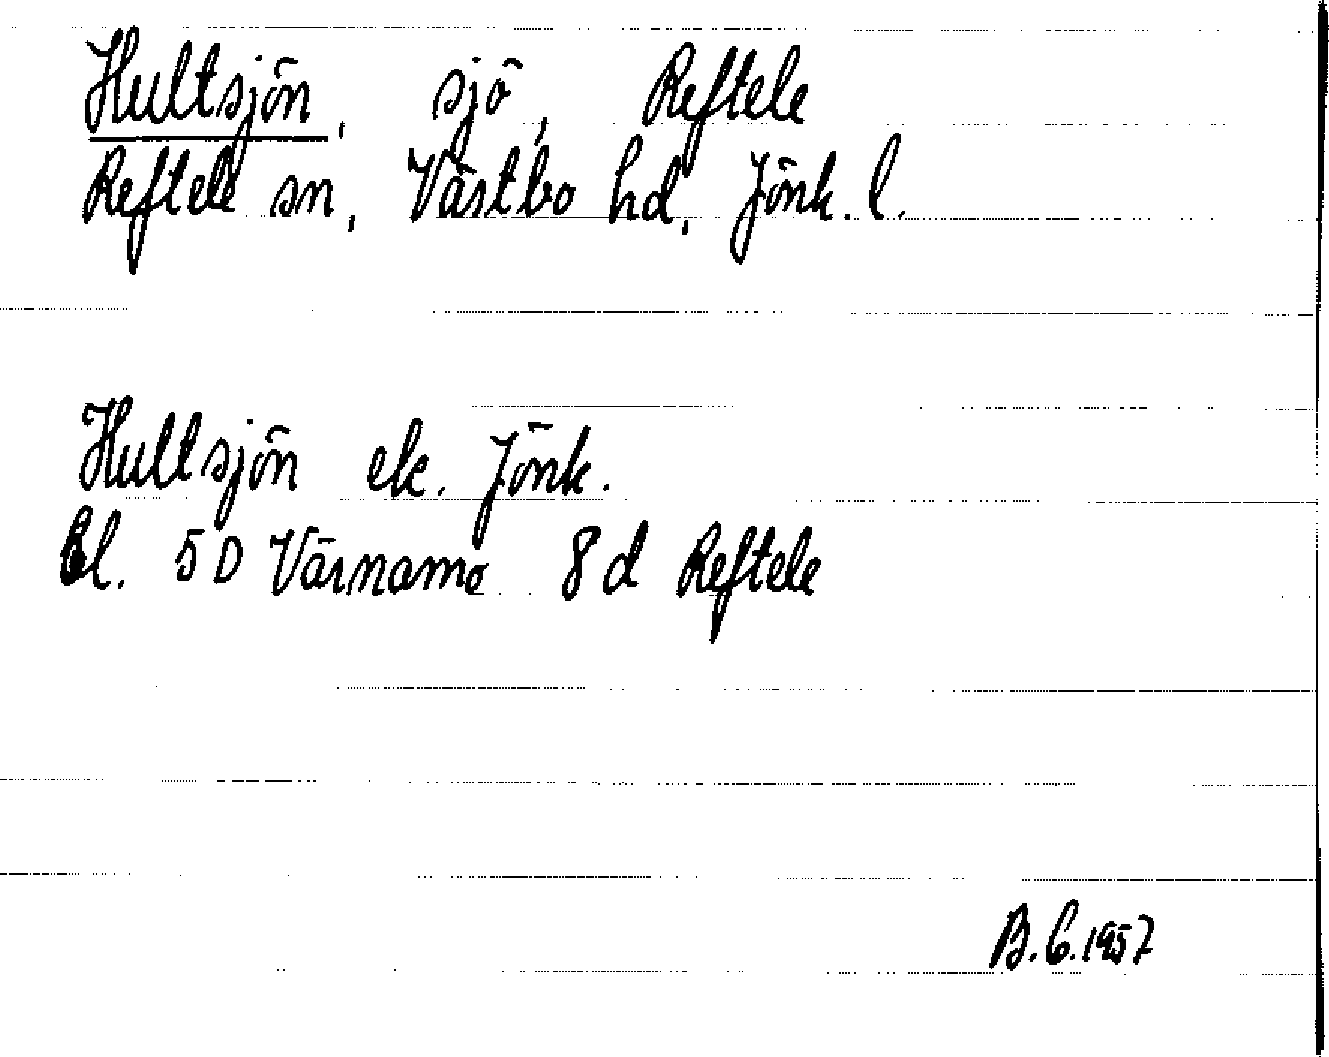 Hultsjön, sjö, Reftele
Reftele sn, Västbo hd, Jönk. l.
Hultsjön ek. Jönk.
Bl. 5D Värnamo 8d Reftele
B.C. 1957